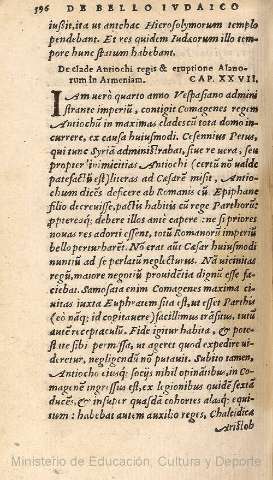 596 DE BELLO IVDAICO
iussit, ita ut antehac Hierosolymorum templo
pendebant. Et res quidem Iudæorum illo tem-
pore hunc statum habebant.
De clade Antiochi regis & eruptione Alano-
rum in Armeniam. CAP. XXVII.
IAm uerò quarto anno Vespasiano admini
strante imperiũ, contigit Comagenes regem
Antiochũ in maximas clades cũ tota domo in-
currere, ex causa huiusmodi. Cesennius Petus,
qui tunc Syriã administrabat, siue re uera, seu
propter inimicitias Antiochi (certũ nõ ualde
patefactũ est) literas ad Cæsarẽ misit, Antio-
chum dicẽs deficere ab Romanis cũ Epiphane
filio decreuisse, pactũ habitũ cũ rege Parthorũ:
ꝓptereaq; debere illos antè capere: ne si priores
nouas res adorti essent, totũ Romanorũ imperiũ
bello perturbarẽt. Nõ erat aũt Cæsar huiusmodi
nuntiũ ad se perlatũ neglecturus. Nã uicinitas
regũ, maiore negotiũ prouidẽtia dignũ esse fa-
ciebat. Samosata enim Comagenes maxima ci-
uitas iuxta Euphratem sita est, ut esset Parthis
(eò nãq; id cogitauere) facillimus trãsitus, tutũ
autẽ receptaculũ. Fide igitur habita, & pote-
state sibi permissa, ut ageret quod expedire ui-
deretur, negligendũ nõ putauit. Subito tamen,
Antiocho eiusq; socijs nihil opinãtibus, in Co-
magenẽ ingressus est, ex legionibus quidẽ sextã
ducẽs, & insuper quasdã cohortes alasq; equi-
tum: habebat autem auxilio reges, Chalcidicæ
Aristob
Ministerio de Educación, Cultura y Deporte